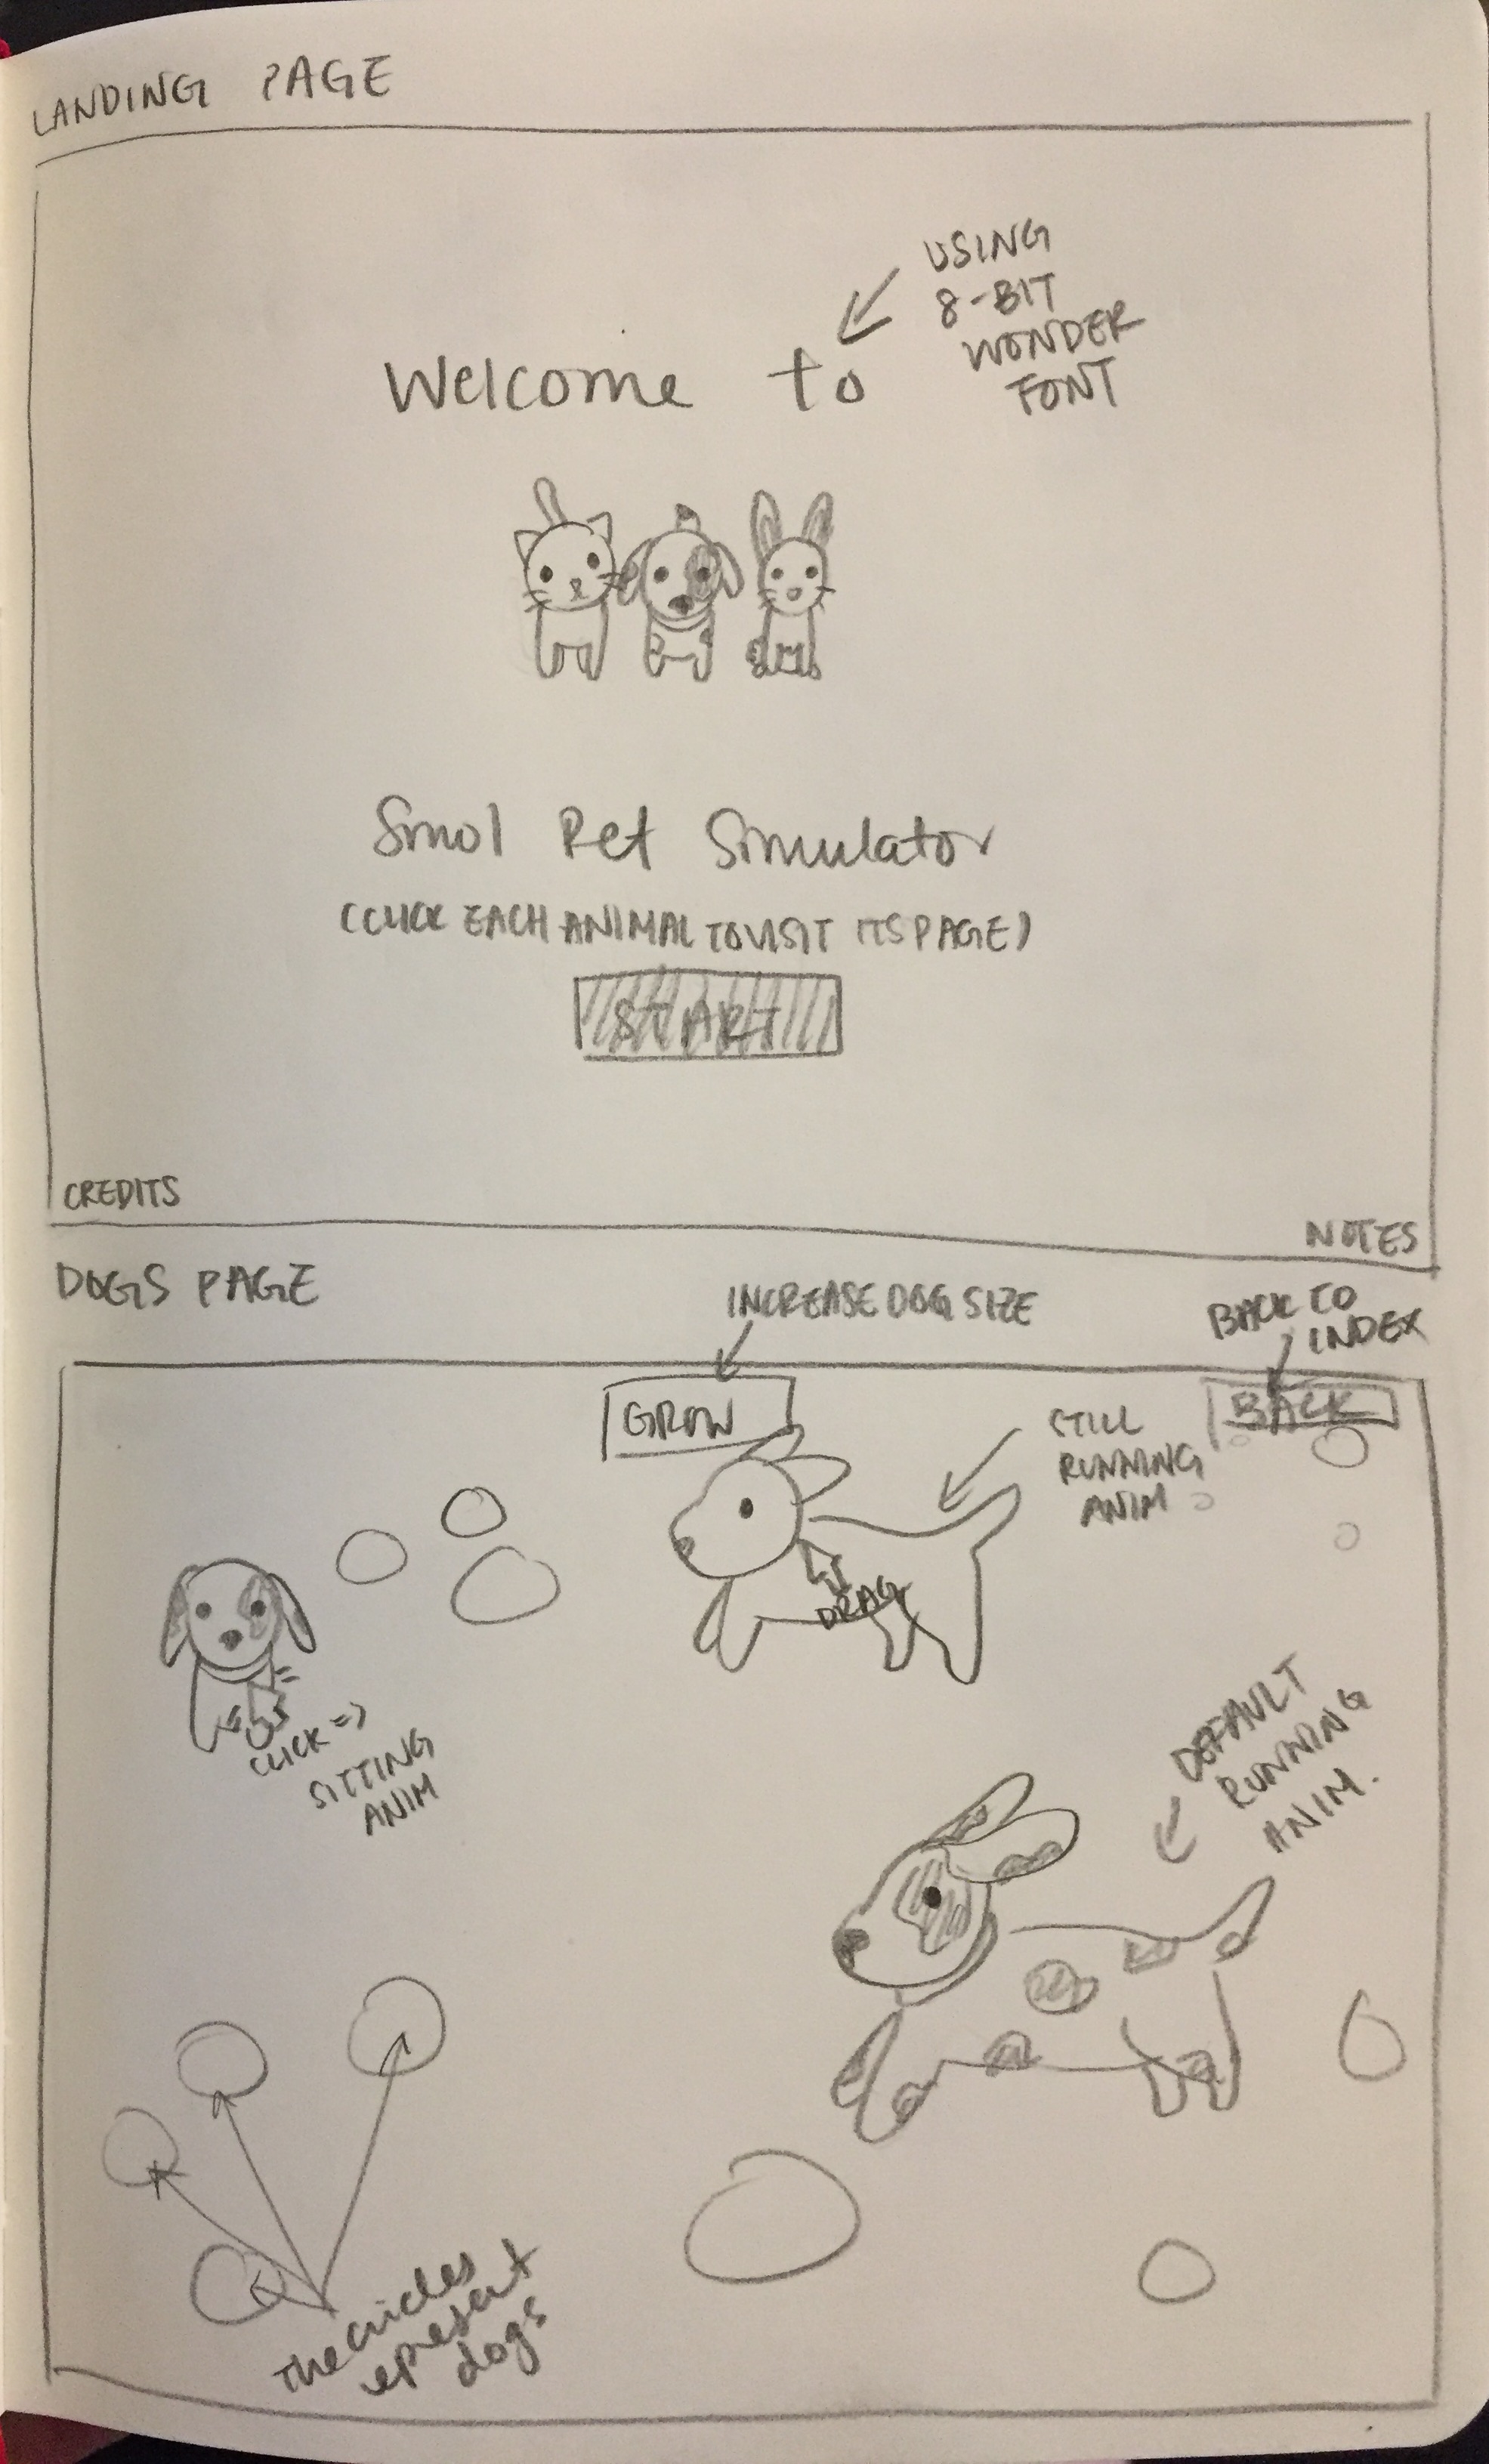 LANDING PAGE
USING
8-BIT
WONDER
FONT
Welcome to
Smol Pet Simulator
(CLICK EACH ANIMAL TO VISIT ITS PAGE)
START
CREDITS
NOTES
DOGS PAGE
INCREASE DOG SIZE
BACK TO
INDEX
GROW
BACK
STILL
RUNNING
ANIM
DRAG
CLICK =>
SITTING
ANIM
DEFAULT
RUNNING
ANIM.
The circles
epresent
dogs